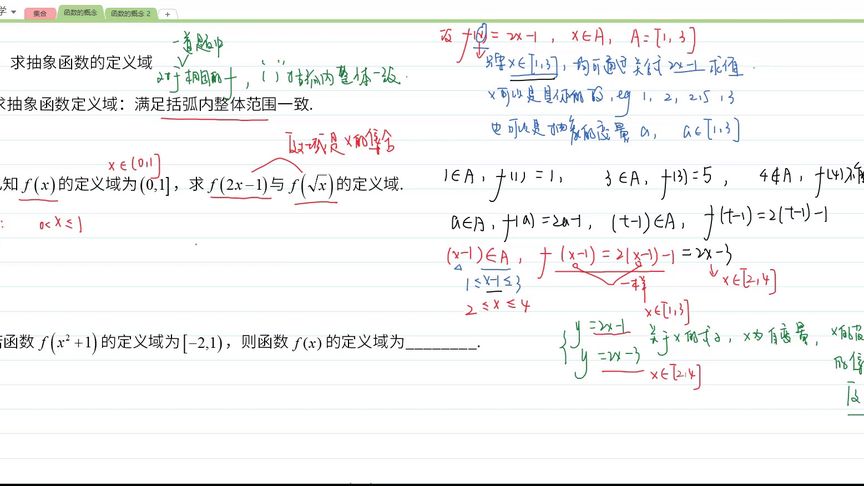 学 集合 函数的概念 函数的概念 2 +
一道题中
求抽象函数的定义域
对于相同的f，( )括弧内整体一致.
求抽象函数定义域：满足括弧内整体范围一致.
定义域是x的集合
x∈(0,1]
知 f(x) 的定义域为 (0,1]，求 f(2x−1) 与 f(√x) 的定义域.
: 0<x≤1
函数 f(x²+1) 的定义域为 [−2,1)，则函数 f(x) 的定义域为________.
设 f(x) = 2x-1 , x∈A, A=[1,3]
x∈[1,3]，均可通过关于 2x-1 求值
x可以是具体的数, eg 1, 2, 2.5, 3
也可以是抽象的变量 a, a∈[1,3]
1∈A, f(1) = 1, 3∈A, f(3)=5, 4∉A, f(4)不
a∈A, f(a) = 2a-1, (t-1)∈A, f(t-1)=2(t-1)-1
(x-1)∈A, f(x-1) = 2(x-1)-1 = 2x-3
1≤x-1≤3 一样 x∈[2,4]
2≤x≤4 x∈[1,3]
y=2x-1 关于x的式子, x为自变量, x的
y=2x-3
x∈[2,4]